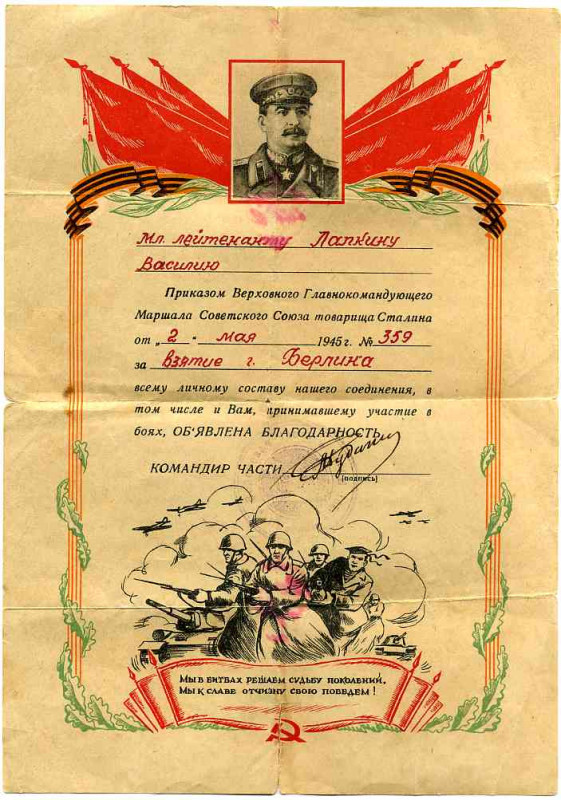 Мл. лейтенанту Лапкину
Василию
Приказом Верховного Главнокомандующего
Маршала Советского Союза товарища Сталина
от „2 - мая 1945 г. № 359
за взятие г. Берлина
всему личному составу нашего соединения, в
том числе и Вам, принимавшему участие в
боях, ОБ'ЯВЛЕНА БЛАГОДАРНОСТЬ
КОМАНДИР ЧАСТИ
(подпись)
МЫ В БИТВАХ РЕШАЕМ СУДЬБУ ПОКОЛЕНИЙ,
МЫ К СЛАВЕ ОТЧИЗНУ СВОЮ ПОВЕДЕМ!